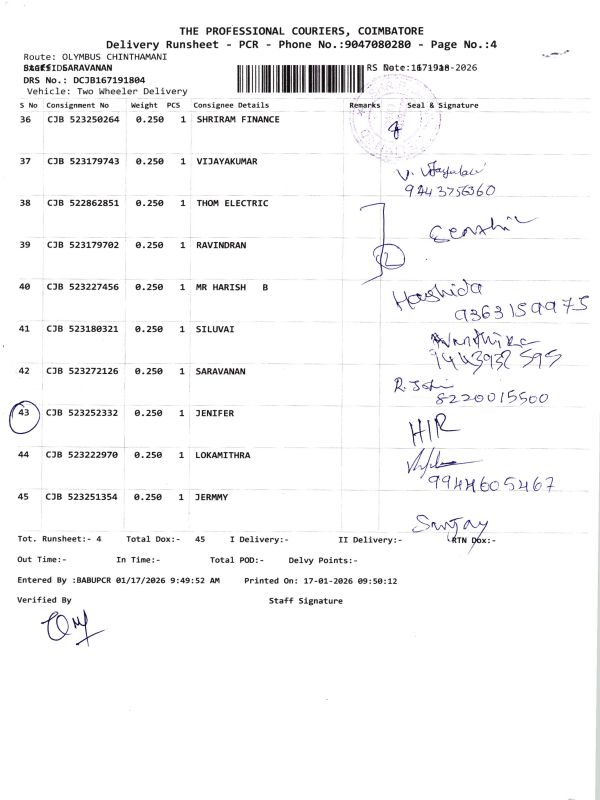 THE PROFESSIONAL COURIERS, COIMBATORE
Delivery Runsheet - PCR - Phone No.:9047080280 - Page No.:4
Route: OLYMBUS CHINTHAMANI
SARAVANAN
DRS No.: DCJB167191804
Vehicle: Two Wheeler Delivery
S No Consignment No Weight PCS Consignee Details Remarks Seal & Signature
36 CJB 523250264 0.250 1 SHRIRAM FINANCE
37 CJB 523179743 0.250 1 VIJAYAKUMAR
9443756360
38 CJB 522862851 0.250 1 THOM ELECTRIC
39 CJB 523179702 0.250 1 RAVINDRAN
40 CJB 523227456 0.250 1 MR HARISH B Harshida
9363159975
41 CJB 523180321 0.250 1 SILUVAI
42 CJB 523272126 0.250 1 SARAVANAN
8220015500
43 CJB 523252332 0.250 1 JENIFER HIR
44 CJB 523222970 0.250 1 LOKAMITHRA
9944605467
45 CJB 523251354 0.250 1 JERMMY
Sanjay
Tot. Runsheet:- 4 Total Dox:- 45 I Delivery:- II Delivery:- RTN Dox:-
Out Time:- In Time:- Total POD:- Delvy Points:-
Entered By :BABUPCR 01/17/2026 9:49:52 AM Printed On: 17-01-2026 09:50:12
Verified By Staff Signature